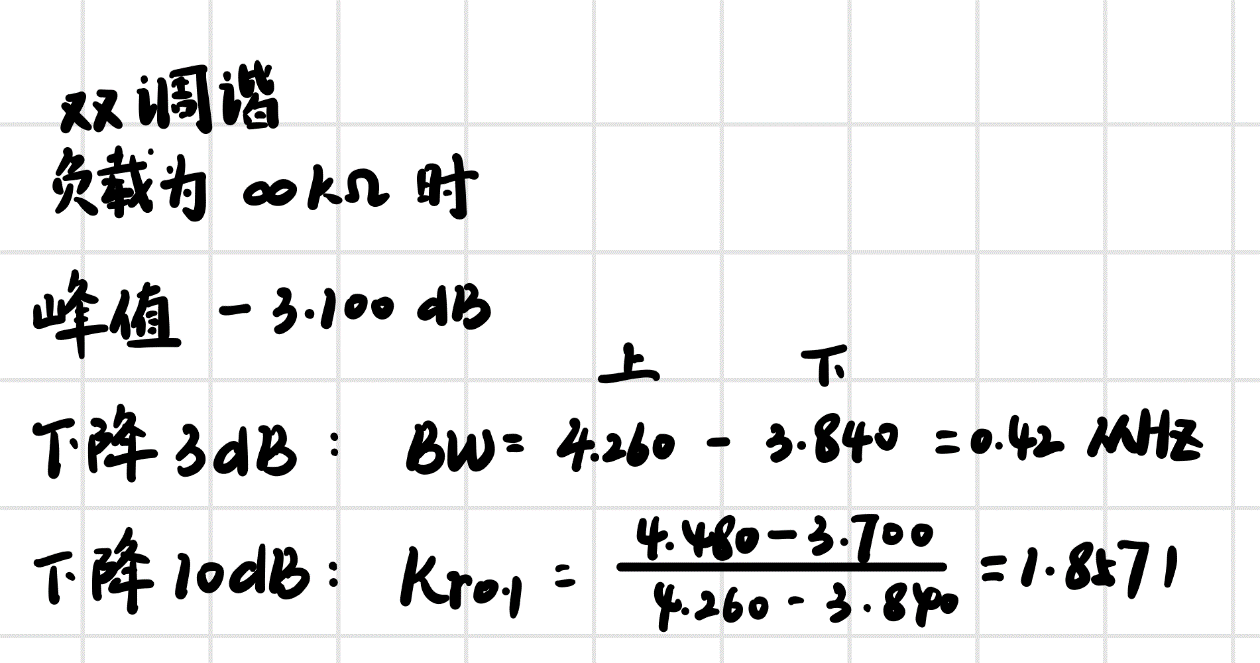 双调谐
负载为 ∞kΩ 时
峰值 -3.100 dB
上 下
下降3dB: BW= 4.260 - 3.840 =0.42 MHz
下降10dB: Kr0.1 = (4.480-3.700)/(4.260-3.840) =1.8571